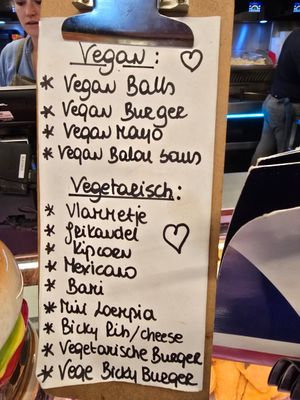 Vegan:
* Vegan Balls
* Vegan Burger
* Vegan Mayo
* Vegan Balou saus
Vegetarisch:
* Vlammetje
* Frikandel
* Kipcorn
* Mexicano
* Bami
* Mini Loempia
* Bicky Rib/cheese
* Vegetarische Burger
* Vege Bicky Burger